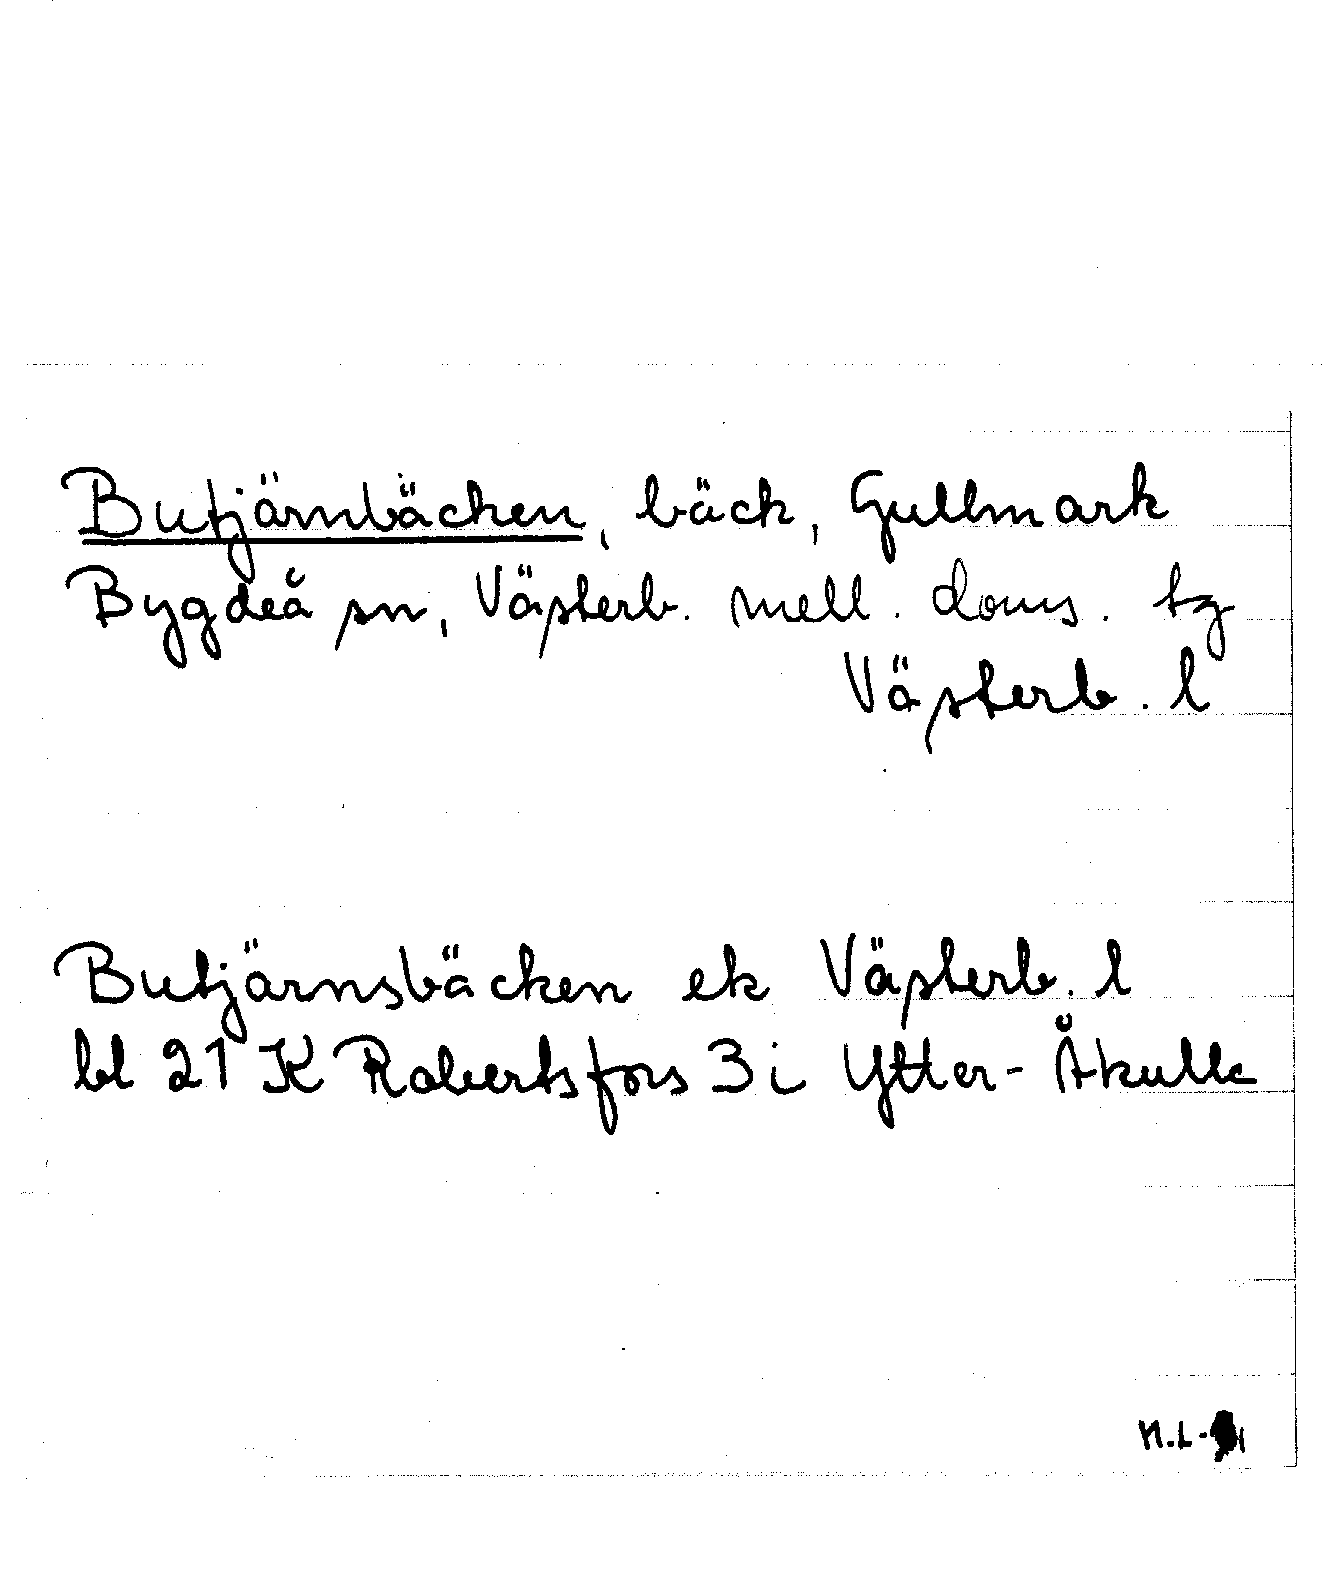 Butjärnbäcken, bäck, Gullmark
Bygdeå sn, Västerb. mell. doms. tg
Västerb. l
Butjärnsbäcken ek Västerb. l
bl 21 K Robertsfors 3 i Ytter-Åkulle